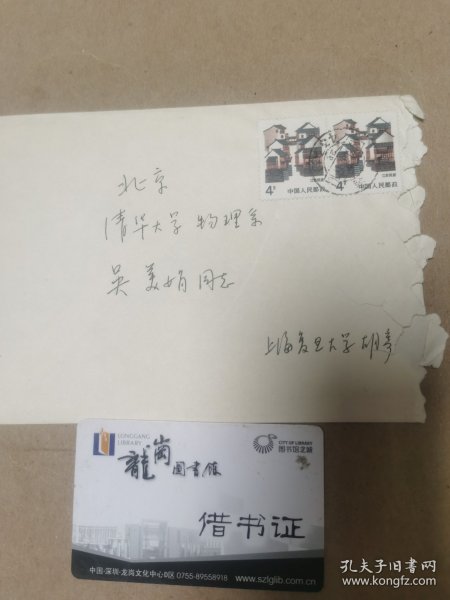 4分
中国人民邮政
江苏民居
4分
中国人民邮政
江苏民居
北京
清华大学 物理系
吴美娟同志
上海复旦大学
LONGGANG
LIBRARY
CITY OF LIBRARY
图书馆之城
龍崗图書馆
借书证
中国·深圳·龙岗文化中心B区 0755-89558918 www.szlglib.com.cn
孔夫子旧书网
www.kongfz.com